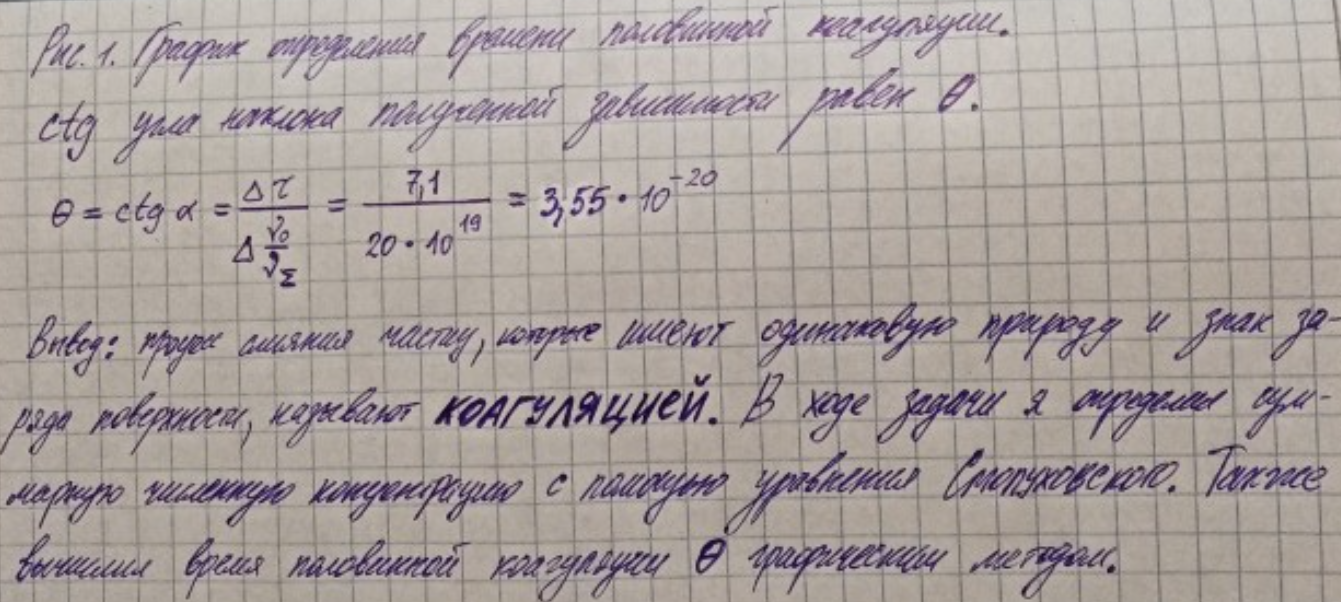 Рис. 1. График определения времени половинной коагуляции.
ctg угла наклона полученной зависимости равен θ.
θ = ctg α = Δτ / Δ(ν₀/ν_Σ) = 7,1 / (20·10¹⁹) = 3,55·10⁻²⁰
Вывод: процесс слияния частиц, которые имеют одинаковую природу и знак за-
ряда поверхности, называют КОАГУЛЯЦИЕЙ. В ходе задачи я определил сум-
марную численную концентрацию с помощью уравнения Смолуховского. Также
вычислил время половинной коагуляции θ графическим методом.